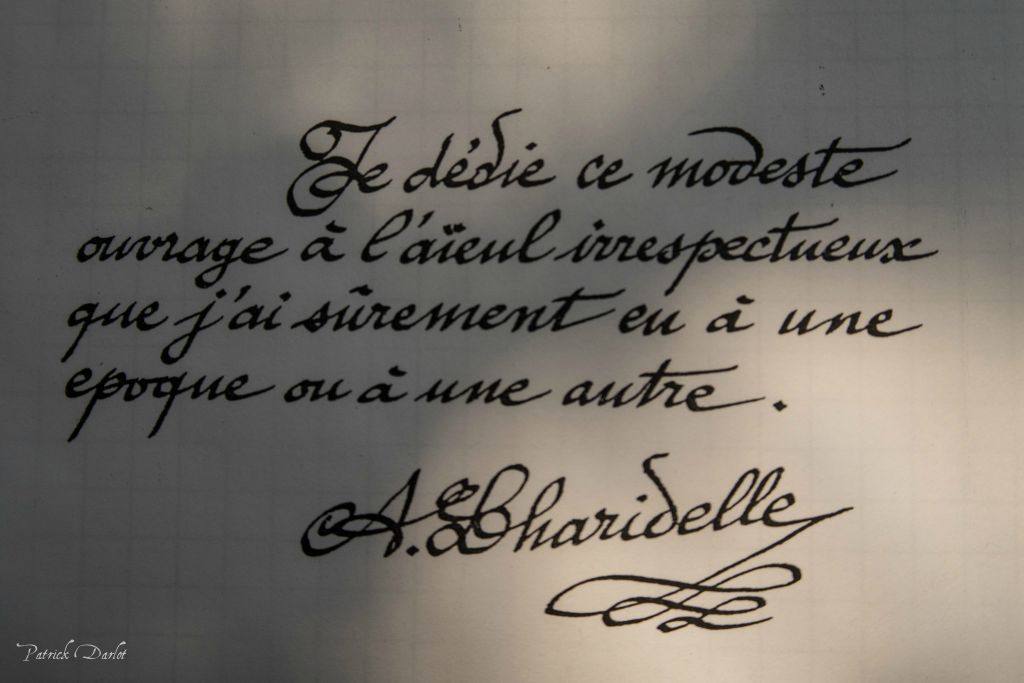 Je dédie ce modeste
ouvrage à l'aïeul irrespectueux
que j'ai sûrement eu à une
epoque ou à une autre.
A. Lharidelle
Patrick Darlot